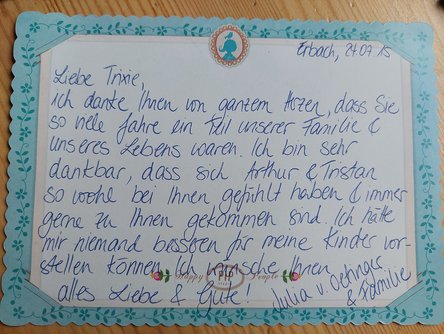 Erbach, 24.07.15
Liebe Trixie,
ich danke Ihnen von ganzem Herzen, dass Sie
so viele Jahre ein Teil unserer Familie &
unseres Lebens waren. Ich bin sehr
dankbar, dass sich Arthur & Tristan
so wohl bei Ihnen gefühlt haben & immer
gerne zu Ihnen gekommen sind. Ich hätte
mir niemand besseren für meine Kinder vor-
stellen können. Ich wünsche Ihnen
Happy People
alles Liebe & Gute! Julia v. Oetinger
& Familie